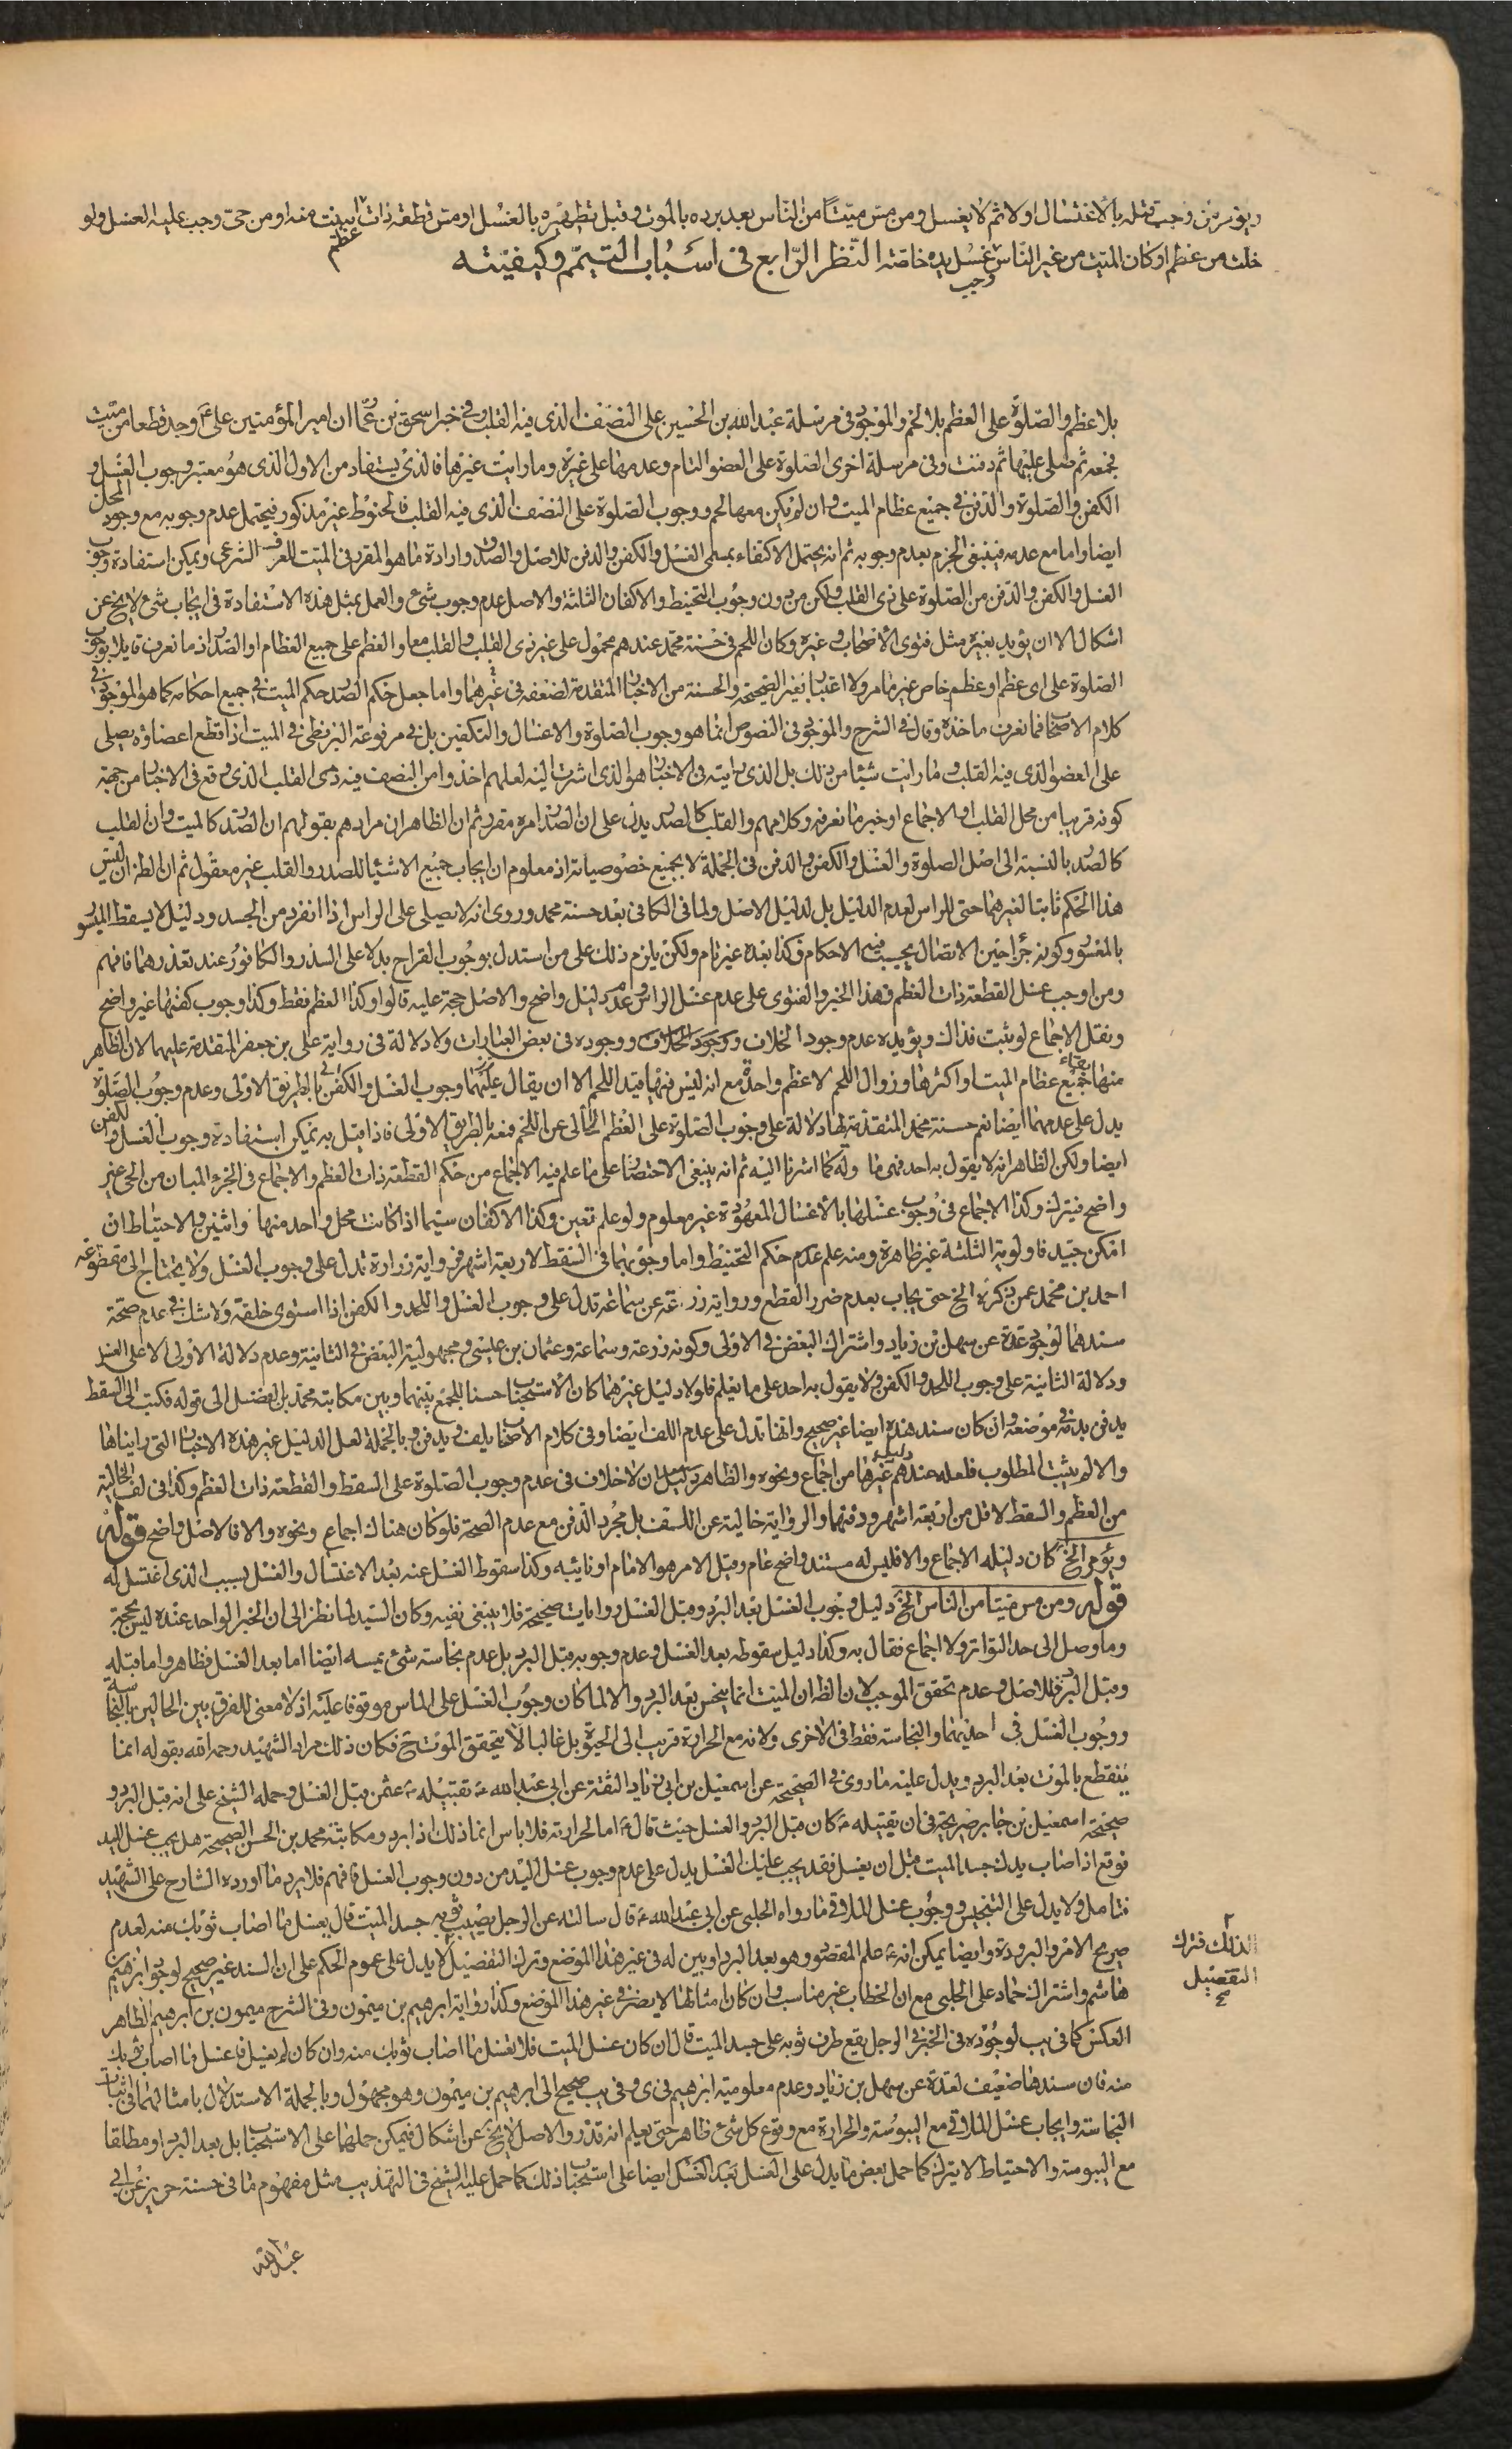 ويؤمر من وجب قتله بالاغتسال اولا ثم لا يغسل ومن مس ميتا من الناس بعد برده بالموت وقبل تطهيره بالغسل او مس قطعة ذات ابينت منه او من حي وجب عليه الغسل ولو
عظم
خلت من عظم او كان الميت من غير الناس غسل يده خاصة النظر الرابع في اسباب التيمم وكيفيته
وجب
بلا عظم والصلوة على العظم بلا لحم والموجود في مرسلة عبد الله بن الحسين على النصف الذي فيه القلب وفي خبر اسحق بن عمار ان امير المؤمنين على ع وجد قطعا من ميت
فجمعه ثم صلى عليها ثم دفنت وفي مرسلة اخرى الصلوة على العضو التام وعدمها على غيره وما رايت غيرها فالذي يستفاد من الاول الذي هو معتبر وجوب الغسل و
الكفن والصلوة والدفن في جميع عظام الميت وان لم يكن معها لحم ووجوب الصلوة على النصف الذي فيه القلب فالحنوط غير مذكور فيحتمل عدم وجوبه مع وجود المحل
ايضا واما مع عدمه فينبغي الجزم بعدم وجوبه ثم انه يحتمل الاكتفاء بمسمى الغسل والكفن والدفن للاصل والصدق وارادة ما هو المقرر في الميت للعرف الشرعي ويمكن استفادة وجوب
الغسل والكفن والدفن من الصلوة على ذي القلب ولكن من دون وجوب التحنيط والاكفان الثلثة والاصل عدم وجوب شيء والعمل بمثل هذه الاستفادة في ايجاب شيء لا يخ عن
اشكال الا ان يؤيد بغيره مثل فتوى الاصحاب وغيره وكان اللحم في حسنة محمد عندهم محمول على غير ذي القلب والقلب معا والعظم على جميع العظام او الصدر اذ ما نعرف قايلا بوجوب
الصلوة على اي عظم او عظم خاص غير ما مر ولا اعتبار بغير الصحيحة والحسنة من الاخبار المتقدمة لضعفه في غيرهما واما جعل حكم الصدر حكم الميت في جميع احكامه كما هو الموجود في
كلام الاصحاب فما نعرف ماخذه وقال في الشرح والموجود في النصوص انما هو وجوب الصلوة والاغتسال والتكفين بل في مرفوعة البزنطي في الميت اذا قطع اعضاؤه يصلى
على العضو الذي فيه القلب وما رايت شيئا من ذلك بل الذي رايته في الاخبار هو الذي اشرت اليه لعلهم اخذوا من النصف فيه ذي القلب الذي وقع في الاخبار من جهة
كونه قريبا من محل القلب او الاجماع او خبر ما نعرفه وكلامهم والقلب كالصدر يدل على ان الصدر امره مقرر ثم ان الظاهر ان مرادهم بقولهم ان الصدر كالميت وان القلب
كالصدر بالنسبة الى اصل الصلوة والغسل والكفن والدفن في الجملة لا بجميع خصوصياته اذ معلوم ان ايجاب جميع الاشياء للصدر والقلب غير معقول ثم ان الظ ان ليس
هذا الحكم ثابتا لغيرهما حتى الراس لعدم الدليل بل لدليل الاصل ولما في الكافي بعد حسنة محمد وروى انه لا يصلى على الراس اذا انفرد من الجسد ودليل لا يسقط الميسور
بالمعسور وكونه جزأ حين الاتصال يجب فيه الاحكام فكذا بعده غير تام ولكن يلزم ذلك على من استدل بوجوب القراح بدلا على السدر والكافور عند تعذرهما فافهم
ومن اوجب غسل القطعة ذات العظم فهذا الخبر والفتوى على عدم غسل الراس وعدم دليل واضح والاصل حجة عليه قالوا وكذا العظم فقط وكذا وجوب كفنها غير واضح
ونقل الاجماع لو ثبت فذاك ويؤيده عدم وجود الخلاف ووجود الخلاف ووجوده في بعض العبارات ولا دلالة في رواية علي بن جعفر المتقدمة عليهما لان الظاهر
منها بقاء جميع عظام الميت او اكثرها وزوال اللحم لا عظم واحدة مع انه ليس فيها قيد اللحم الا ان يقال عليهما وجوب الغسل والكفن بالطريق الاولى وعدم وجوب الصلوة
يدل على عدمهما ايضا نعم حسنة محمد المتقدمة لها دلالة على وجوب الصلوة على العظم الخالي عن اللحم فمعه بالطريق الاولى فاذا قيل به يمكن استفادة وجوب الغسل والكفن
ايضا ولكن الظاهر انه لا يقول به احد فهي ماولة كما اشرنا اليه ثم انه ينبغي الاختصار على ما علم فيه الاجماع من حكم القطعة ذات العظم والاجماع في الجزء المبان من الحي غير
واضح فيترك وكذا الاجماع في وجوب غسلها بالاغسال المعهودة غير معلوم ولو علم تعين وكذا الاكفان سيما اذا كانت محل واحد منها واثنين والاحتياط ان
امكن جيد فاولوية الثلثة غير ظاهرة ومنه علم عدم حكم التحنيط واما وجوبهما في السقط لاربعة اشهر فرواية زرارة تدل على وجوب الغسل ولا يحتاج الى مقطوعة
احمد بن محمد عمن ذكره الخ حتى يجاب بعدم ضرر القطع ورواية زرعة عن سماعة تدل على وجوب الغسل واللحد والكفن اذا استوى خلقة ولا شك في عدم صحة
سندهما لوجود عدة عن سهل بن زياد واشتراك البعض في الاولى وكونه زرعة وسماعة وعثمان بن عيسى ومجهولية البعض في الثانية وعدم دلالة الاولى الا على الغسل
ودلالة الثانية على وجوب اللحد والكفن ولا يقول به احد على ما يعلم فلولا دليل غيرهما كان الاستحباب حسنا للجمع بينهما وبين مكاتبة محمد بن الفضل الى قوله فكتب الى السقط
يدفن بدمه في موضعه وان كان سند هذه ايضا غير صحيح وانها تدل على عدم اللف ايضا وفي كلام الاصحاب يلف ويدفن وبالجملة لعل الدليل غير هذه الاخبار التي رايناها
والا لم يثبت المطلوب فلعله عندهم دليل غيرها من اجماع ونحوه والظاهر ان لا خلاف في عدم وجوب الصلوة على السقط والقطعة ذات العظم وكذا في لف الخالية
من العظم والسقط لاقل من اربعة اشهر ودفنها والرواية خالية عن اللف بل مجرد الدفن مع عدم الصحة فلو كان هناك اجماع ونحوه والا فالاصل واضح قوله
ويؤمر الخ كان دليله الاجماع والا فليس له مستند واضح عام وقيل الامر هو الامام او نائبه وكذا سقوط الغسل عنه بعد الاغتسال والقتل بسبب الذي اغتسل له
قوله ومن مس ميتا من الناس الخ دليل وجوب الغسل بعد البرد وقبل الغسل روايات صحيحة فلا ينبغي نفيه وكان السيد لما نظر الى ان الخبر الواحد عنده ليس بحجة
وما وصل الى حد التواتر ولا اجماع فقال به وكذا دليل سقوطه بعد الغسل وعدم وجوبه قبل البرد بل عدم نجاسة شيء يمسه ايضا اما بعد الغسل فظاهر واما قبله
وقبل البرد فللاصل وعدم تحقق الموجب لان الظ ان الميت انما ينجس بعد البرد والا لما كان وجوب الغسل على الماس موقوفا عليه اذ لا معنى للفرق بين الحالين بالنجاسة
ووجوب الغسل في احديهما والنجاسة فقط في الاخرى ولانه مع الحرارة قريب الى الحيوة بل غالبا لا يتحقق الموت ح فكان ذلك مراد الشهيد رحمه الله بقوله انما
ينقطع بالموت بعد البرد ويدل عليه ما روى في الصحيحة عن اسمعيل بن ابي زياد الثقة عن ابي عبد الله ع تقبيله ع عثمن قبل الغسل وحمله الشيخ على انه قبل البرد و
صحيحة اسمعيل بن جابر صريحة في ان تقبيله ع كان قبل البرد والغسل حيث قال ع اما لحرارته فلا باس انما ذلك اذا برد ومكاتبة محمد بن الحسن الصحيحة هل يجب غسل اليد
فوقع اذا اصاب يدك جسد الميت قبل ان يغسل فقد يجب عليك الغسل يدل على عدم وجوب غسل اليد من دون وجوب الغسل فافهم فلا يرد ما اورده الشارح على الشهيد
فتامل ولا يدل على التنجيس ووجوب غسل الملاقي ما رواه الحلبي عن ابي عبد الله ع قال سالته عن الرجل يصيب ثوبه جسد الميت قال يغسل ما اصاب ثوبك عنه لعدم
صريح الامر والبرودة وايضا يمكن انه ع علم المقصود وهو بعد البرد او بين له في غير هذا الموضع وترك التفصيل لا يدل على عموم الحكم على ان السند غير صحيح لوجود ابرهيم بن
لذلك فترك
التفصيل
صح
هاشم واشتراك حماد على الحلبي مع ان الخطاب غير مناسب وان كان امثالها لا يضر في غير هذا الموضع وكذا رواية ابرهيم بن ميمون وفي الشرح ميمون بن ابرهيم الظاهر
العكس كما في يب لوجوده في الخبر في الرجل يقع طرف ثوبه على جسد الميت قال ان كان غسل الميت فلا تغسل ما اصاب ثوبك منه وان كان لم يغسل فاغسل ما اصاب ثوبك
منه فان سندها ضعيف لعدة عن سهل بن زياد وعدم معلومية ابرهيم في ى وفي يب صحيح الى ابرهيم بن ميمون وهو مجهول وبالجملة الاستدلال بامثالهما في اثبات
النجاسة وايجاب غسل الملاقي مع اليبوسة والحرارة مع وقوع كل شيء ظاهر حتى يعلم انه قذر والاصل لا يخ عن اشكال فيمكن حملها على الاستحباب بل بعد البرد او مطلقا
مع اليبوسة والاحتياط لا يترك كما حمل بعض ما يدل على الغسل بعد الغسل ايضا على استحباب ذلك كما حمل عليه الشيخ في التهذيب مثل مفهوم ما في حسنة حريز عن ابي
عبد الله